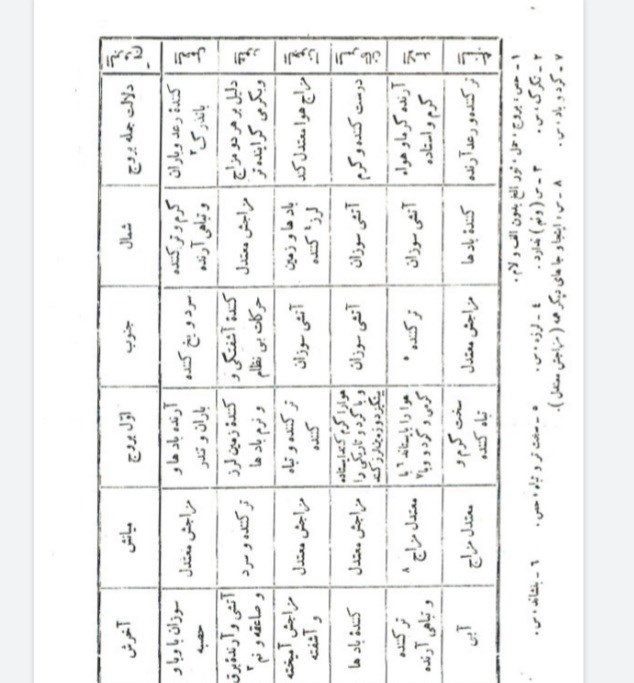 دلالت جمله بروج
شمال
جنوب
اوّل بروج
میانش
آخرش
کنندهٔ رعد و باران
باتدرگ ۲
گرم و تر کننده
و تباهی آرنده
سرد و یخ کننده
آرنده بادها و
باران و تندر
مزاجش معتدل
سوزان با وبا و
حصبه
دلیل بر هر دو مزاج
و بگرمی گراینده تر
مزاجش معتدل
کنندهٔ آشفتگی و
حرکات بی نظام
کنندهٔ زمین لرز
و نرم بادها
تر کننده و سرد
آتشی و آرندهٔ برق
و صاعقه و نم ۳
مزاج هوا معتدل کند
بادها و زمین
لرز ۴ کننده
آتشی سوزان
تر کننده و تباه
کننده
مزاجش معتدل
مزاجش آمیخته
و آشفته
درست کننده و گرم
آتشی سوزان
آتشی سوزان
هوا را گرم کند ایستاده
و با گرد و تاریکی را
مزاجش معتدل
کنندهٔ بادها
آرنده گرما و هواء
گرم و استاده
آتشی سوزان
تر کننده ۵
هوا را بایستاند ۶ با
گرمی و گرد و وبا ۷
معتدل مزاج ۸
تر کننده
و تباهی آرنده
تر کننده و رعد آرنده
کنندهٔ بادها
مزاجش معتدل
سخت گرم و
تباه کننده
معتدل مزاج
آبی
۱ - حص: بروج: حمل، ثور الخ بدون الف و لام.
۲ - تگرگ، س. ۳ - س (ونم) ندارد. ۴ - لرزه، س. ۵ - سخت تر و تباه، حص. ۶ - بنشاند، س.
۷ - گرد و باد، س. ۸ - س، اینجا و جاهای دیگر همه (مزاجش معتدل).